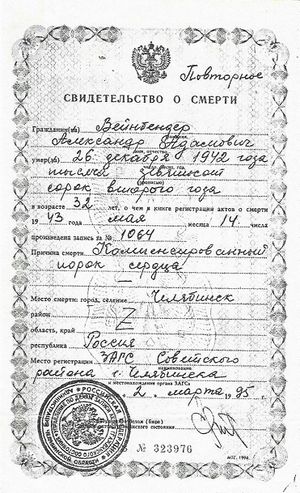 Повторное
СВИДЕТЕЛЬСТВО О СМЕРТИ
Гражданин(ка) Вейнбендер
Александр Адамович
умер(ла) 26 декабря 1942 года
тысяча девятьсот
сорок второго года
в возрасте 32 лет, о чем в книге регистрации актов о смерти
19 43 года мая месяца 14 числа
произведена запись за № 1064
Причина смерти: Компенсированный
порок сердца
Место смерти: город, селение Челябинск
район
область, край
республика Россия
Место регистрации ЗАГС Советского
района г. Челябинска
наименование и местонахождение органа ЗАГСа
2 марта 1995 г.
№ 323976